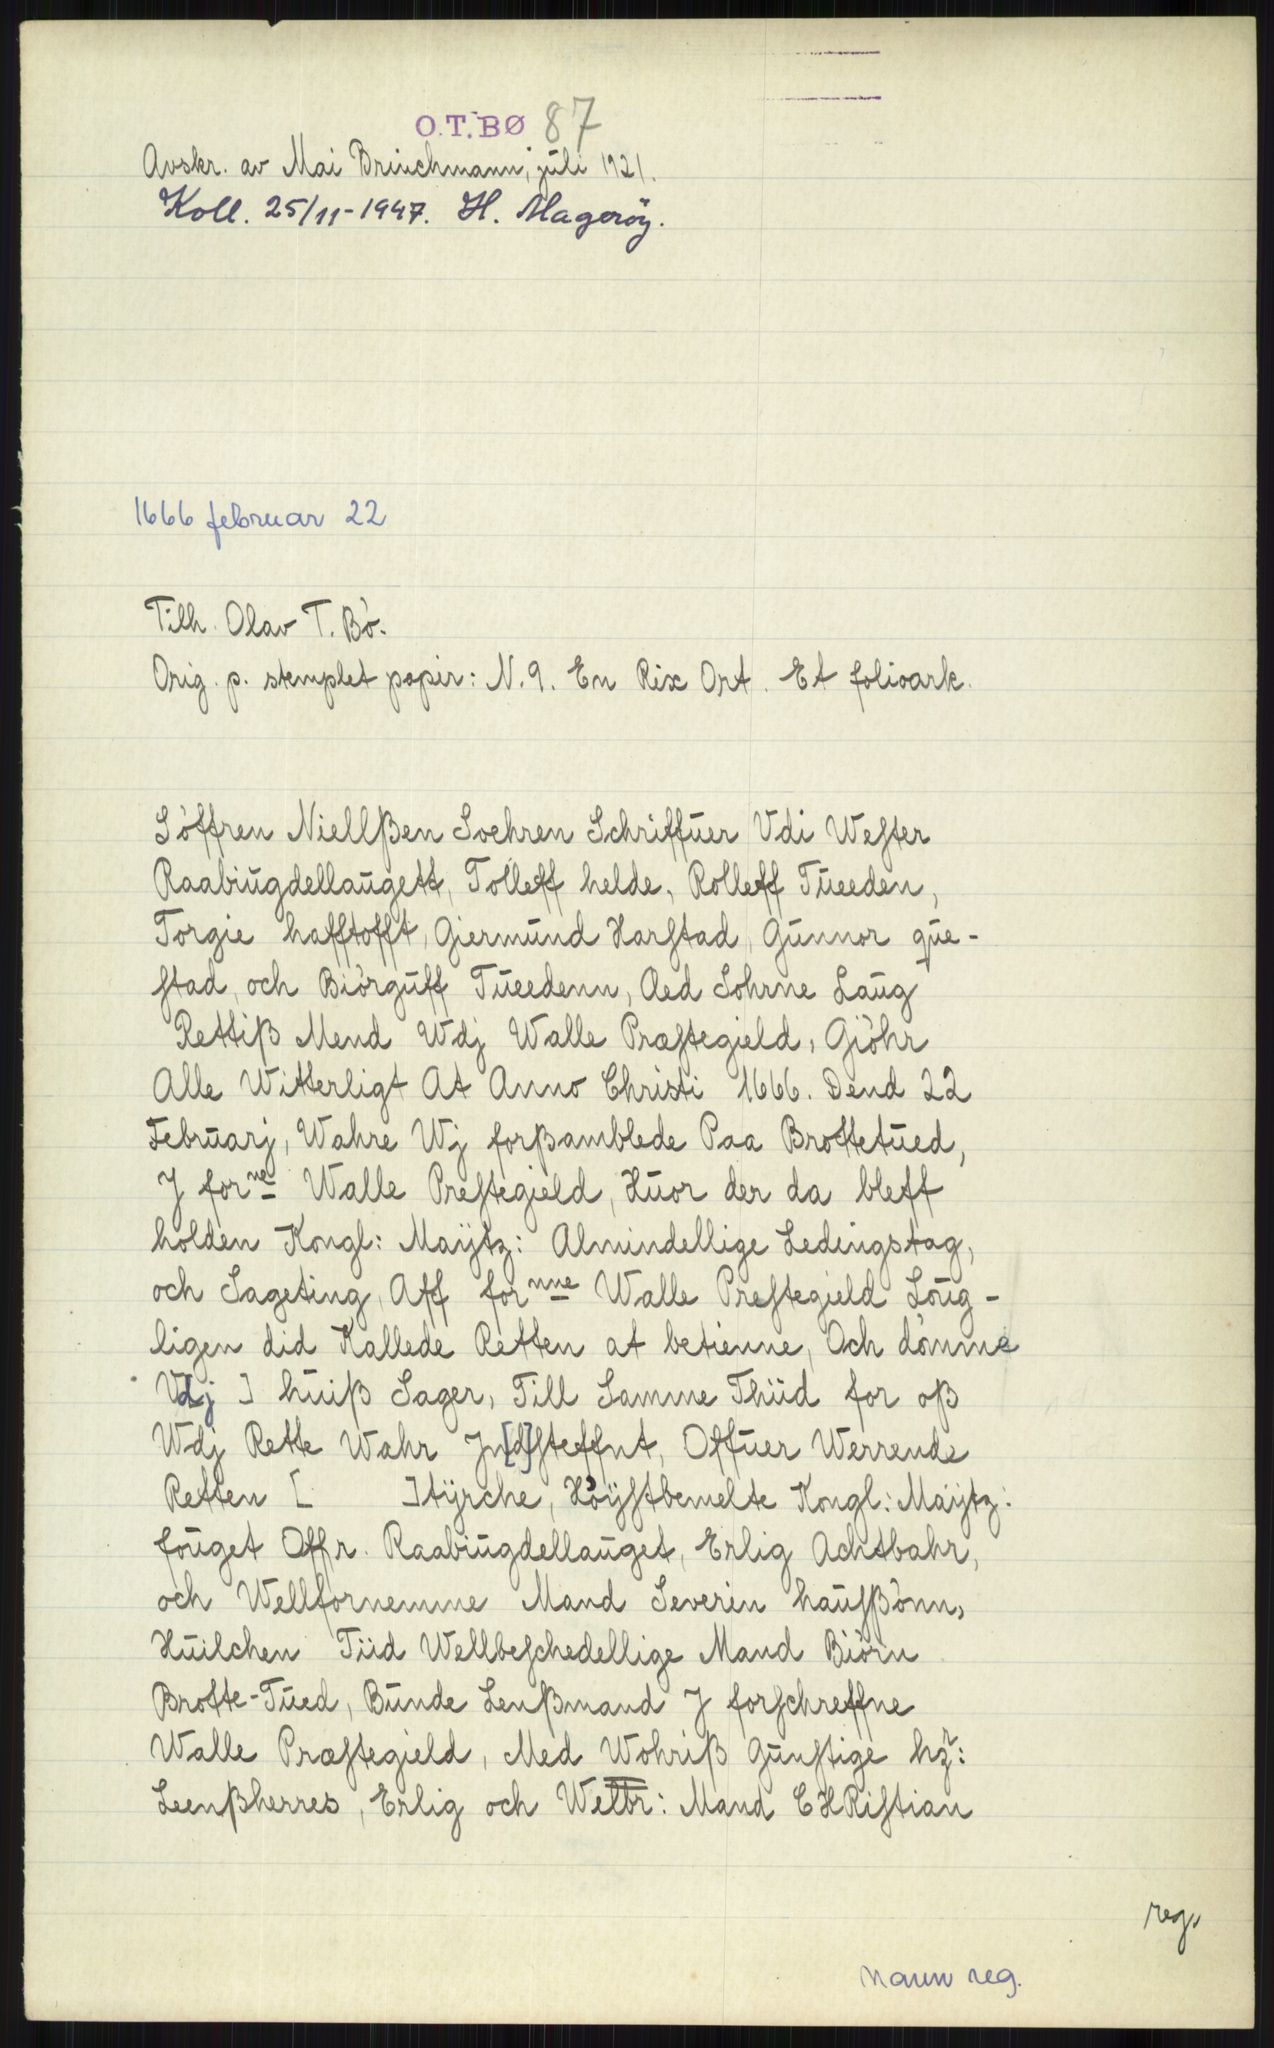 O.T.BØ 87
Avskr. av Mai Brinchmann, juli 1921.
Koll. 25/11-1947. H. Magerøy.
1666 februar 22
Tilh. Olav T. Bö.
Orig. p. stemplet papir: N. 9. En Rix Ort. Et folioark.
Söffren Niellßen Soehren Schriffuer Vdi Wester
Raabiugdellaugett, Tolleff helde, Rolleff Tueeden,
Torgie hafftofft, Giermund Harstad, Gunnor que-
stad, och Biörguff Tueedenn, Aed Sohrne Laug
Rettiß Mend Wdj Walle Præstegield, Giöhr
Alle Witterligt At Anno Christi 1666. Dend 22
Februarj, Wahre Wj forßamblede Paa Brottetued,
J forne Walle Prestegield, Huor der da bleff
holden Kongl: Maÿtz: Almindellige Ledingstag,
och Sageting, Aff fornne Walle Prestegield Loug-
ligen did Kallede Retten at betienne, Och dömme
Vdj ] huiß Sager, Till Samme Thiid for oß
Wdj Rette Wahr Jn[d]steffnt, Offuer Werrende
Retten [ ]tÿrche, Höÿstbemelte Kongl: Maÿtz:
fouget Offr. Raabiugdellauget, Erlig Achtbahr,
och Wellfornemme Mand Severin haußönn,
Huilchen Tiid Wellbeschedellige Mand Biörn
Brotte-Tued, Bunde Lenßmand J forschreffne
Walle Præstegield, Med Wohriß Gunstige hr:
Leenßherres, Erlig och Welbr: Mand CHRistian
reg.
navn reg.